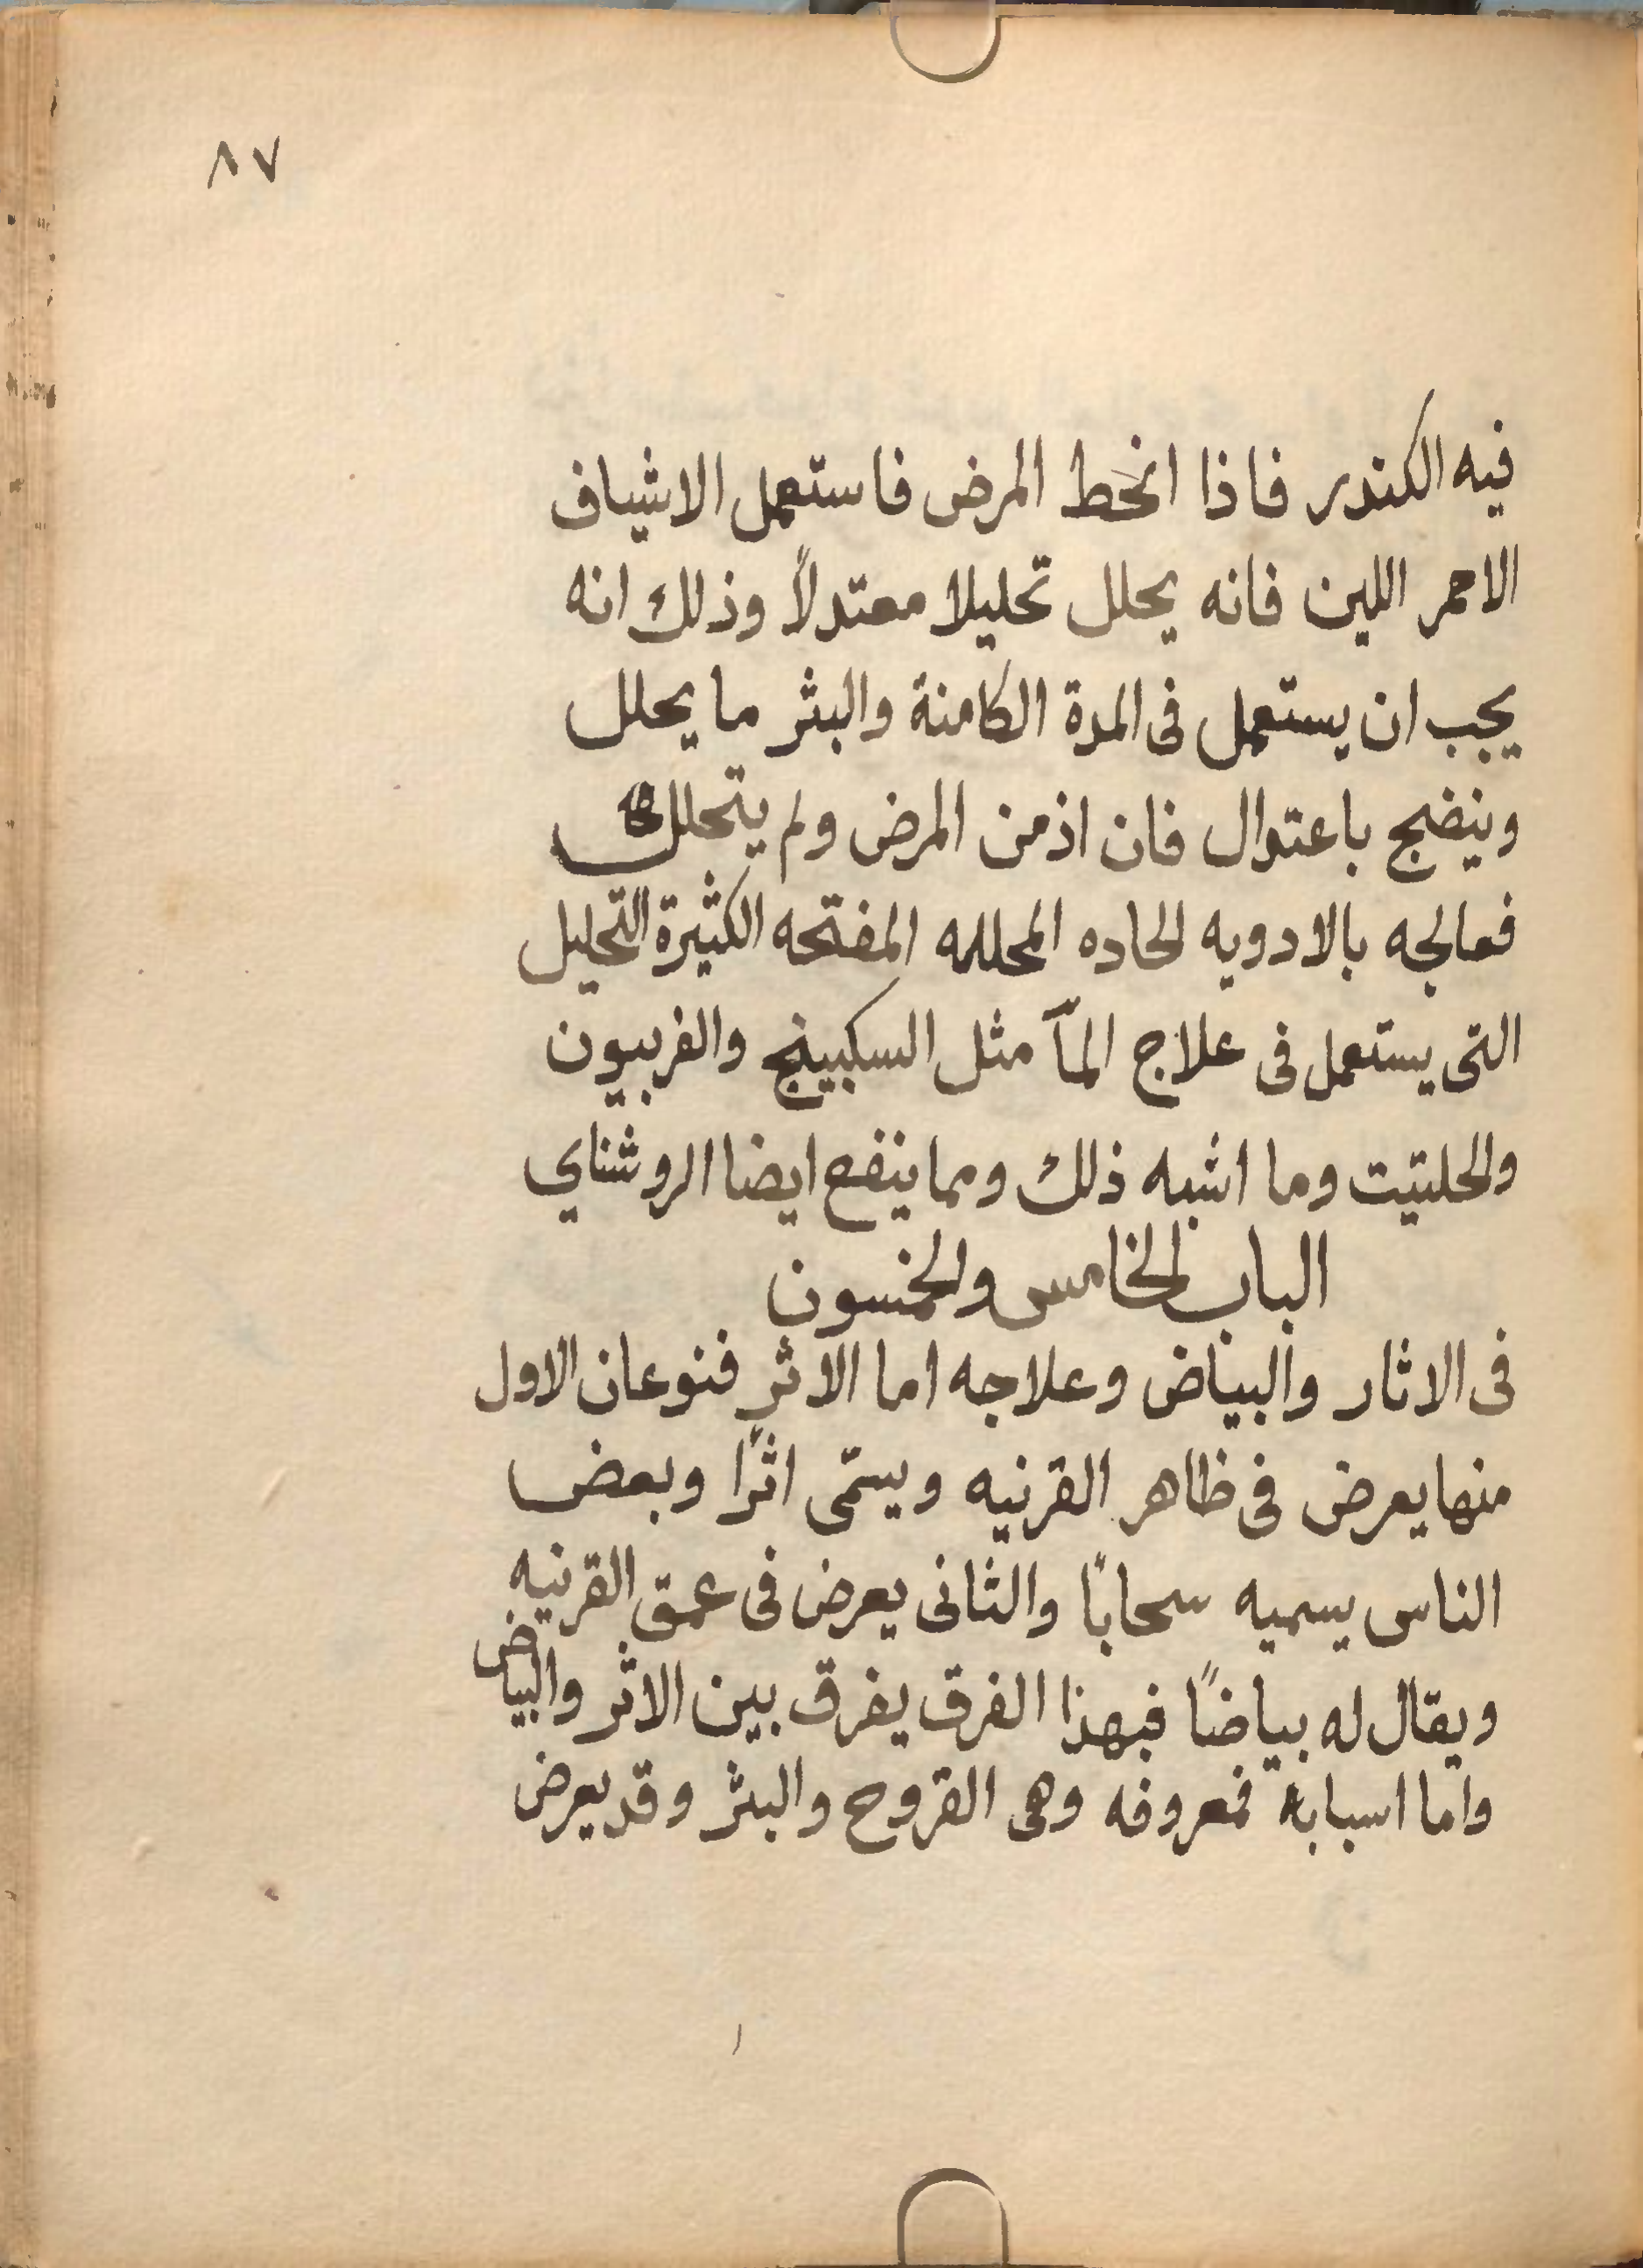 ٨٧
فيه الكندر فاذا انحط المرض فاستعمل الاشياف
الاحمر اللين فانه يحلل تحليلا معتدلاً وذلك انه
يجب ان يستعمل فى المدة الكامنة والبثر ما يحلل
وينضج باعتدال فان اذمن المرض ولم يتحلل
فعالجه بالادويه الحاده المحلله المفتحه الكثيرة التحليل
التى يستعمل فى علاج المآ مثل السكبينج والفربيون
والحلتيت وما اشبه ذلك ومما ينفع ايضا الروشناي
الباب الخامس والخمسون
فى الاثار والبياض وعلاجه اما الاثر فنوعان الاول
منها يعرض فى ظاهر القرنيه ويسمّى اثرًا وبعض
الناس يسميه سحابًا والثانى يعرض فى عمق القرنيه
ويقال له بياضًا فبهذا الفرق يفرق بين الاثر والبياض
واما اسبابه فمعروفه وهى القروح والبثر وقد يعرض